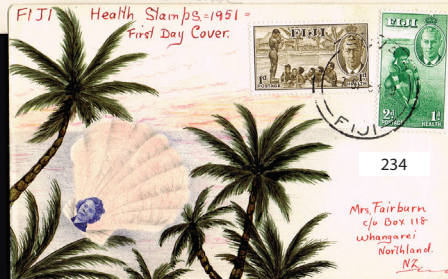 FIJI Health Stamps = 1951 =
First Day Cover.
FIJI
1d 1d
POSTAGE
FIJI
2d 1d
POSTAGE HEALTH
FIJI
234
Mrs. Fairburn
c/o Box 118
Whangarei
Northland.
NZ.